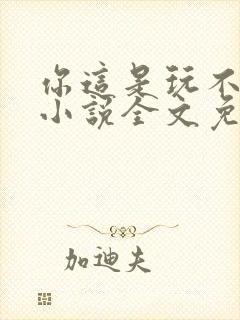 你這是玩不
小說全文免
加迪夫